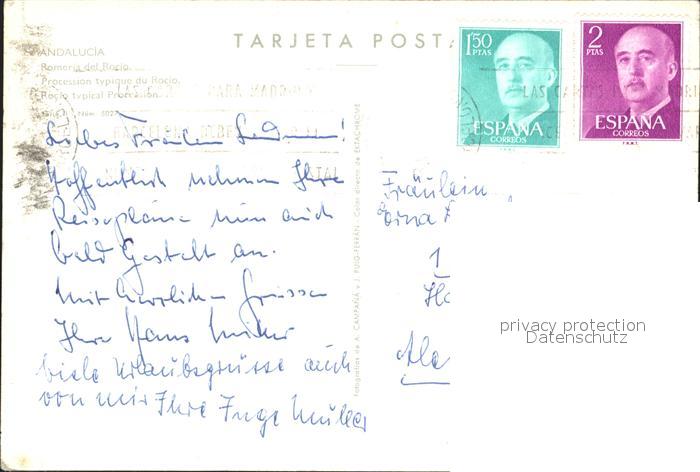 TARJETA POSTA
ANDALUCÍA
Romería del Rocío.
Procesión typique du Rocío.
Rocío typical Procession.
1'50 PTAS
ESPAÑA
CORREOS
F.N.M.T.
2 PTAS
ESPAÑA
CORREOS
F.N.M.T.
LAS CARTAS PARA MADRID
BARCELONA
POSTAL
Liebes Fräulein
Hoffentlich nehmen Ihre
Reisepläne nun auch
bald Gestalt an.
Mit herzlichen Grüssen
Ihr Hans Müller
Viele Urlaubsgrüsse auch
von mir Ihre Inge Müller
Fotografías de A. CAMPAÑA y J. PUIG-FERRÁN - Color directo de EKTACHROME
Fräulein
Erna
1
privacy protection
Datenschutz